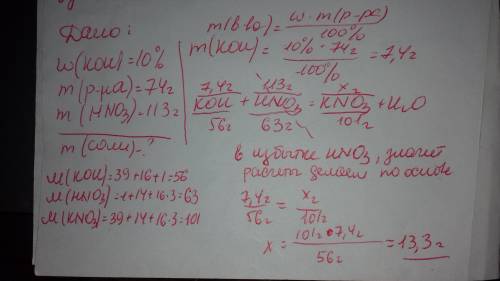 Дано:
w(KOH)=10%
m(р-ра)=74г
m(HNO₃)=113г
m(соли)-?
M(KOH)=39+16+1=56
M(HNO₃)=1+14+16·3=63
M(KNO₃)=39+14+16·3=101
m(в-ва)=w·m(р-ра)/100%
m(KOH)=10%·74г/100%=7,4г
7,4г 113г x г
KOH + HNO₃ = KNO₃ + H₂O
56г 63г 101г
в избытке HNO₃, значит
расчет делаем по основ
7,4г/56г = x г/101г
x = 101г·7,4г/56г = 13,3г